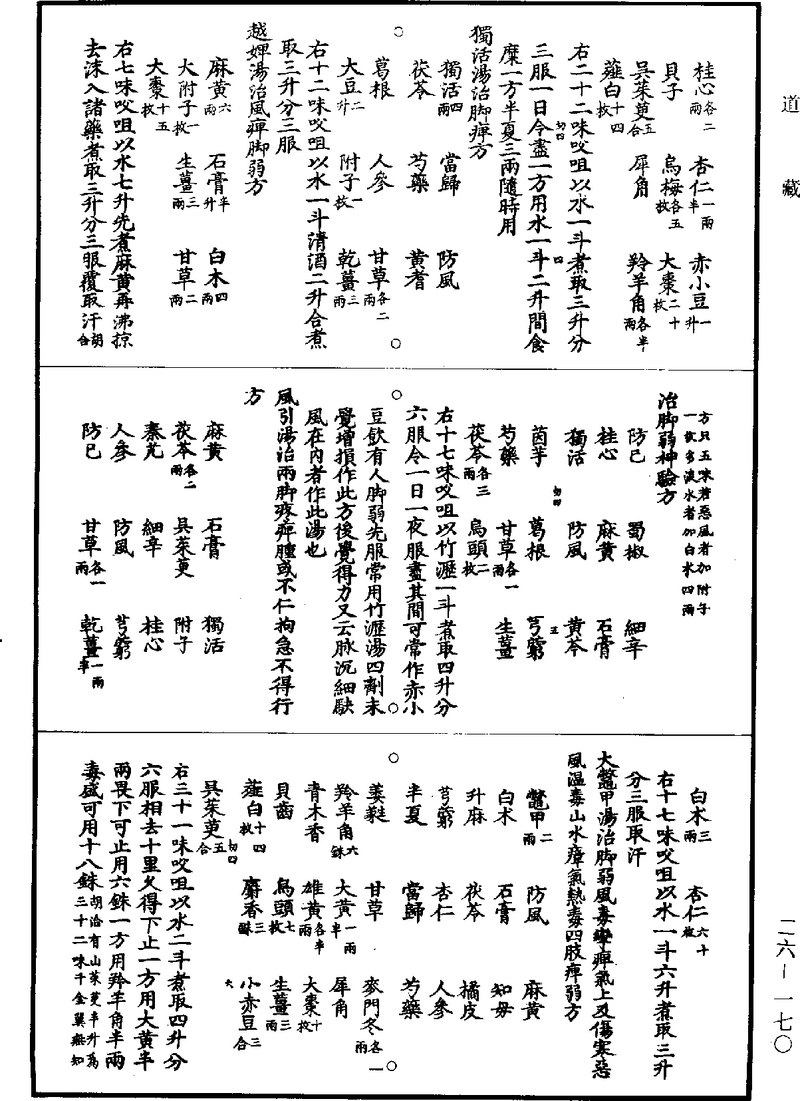 道藏
桂心各二兩 杏仁一兩半 赤小豆一升
貝子 烏梅各五枚 大棗二十枚
吳茱萸五合 犀角 羚羊角各半兩
薤白十四枚
右二十二味㕮咀以水一斗煮取三升分
三服一日令盡一方用水一斗二升間食
糜一方半夏三兩隨時用
獨活湯治脚痺方
獨活四兩 當歸 防風
茯苓 芍藥 黃耆
葛根 人參 甘草各二兩
大豆二升 附子一枚 乾薑三兩
右十二味㕮咀以水一斗清酒二升合煮
取三升分三服
越婢湯治風痺脚弱方
麻黃六兩 石膏半升 白朮四兩
大附子一枚 生薑三兩 甘草二兩
大棗十五枚
右七味㕮咀以水七升先煮麻黃再沸掠
去沫入諸藥煮取三升分三服覆取汗胡洽
方只五味若惡風者加附子
一枚多淡水者加白朮四兩
治脚弱神驗方
防已 蜀椒 細辛
桂心 麻黃 石膏
獨活 防風 黃芩
茵芋 葛根 芎藭
芍藥 甘草各一兩 生薑
茯苓各三兩 烏頭二枚
右十七味㕮咀以竹瀝一斗煮取四升分
六服令一日一夜服盡其間可常作赤小
豆飲有人脚弱先服常用竹瀝湯四劑未
覺增損作此方後覺得力又云脉沉細駃
風在內者作此湯也
風引湯治兩脚疼痺腫或不仁拘急不得行
方
麻黃 石膏 獨活
茯苓各二兩 吳茱萸 附子
秦艽 細辛 桂心
人參 防風 芎藭
防已 甘草各一兩 乾薑一兩半
白朮三兩 杏仁六十枚
右十七味㕮咀以水一斗六升煮取三升
分三服取汗
大鼈甲湯治脚弱風毒攣痺氣上及傷寒惡
風溫毒山水瘴氣熱毒四肢痺弱方
鼈甲二兩 防風 麻黃
白朮 石膏 知母
升麻 茯苓 橘皮
芎藭 杏仁 人參
半夏 當歸 芍藥
萎蕤 甘草 麥門冬各一兩
羚羊角六銖 大黃一兩半 犀角
青木香 雄黃各半兩 大棗十枚
貝齒 烏頭七枚 生薑三兩
薤白十四枚 麝香三銖 小赤豆三合
吳茱萸五合
右三十一味㕮咀以水二斗煮取四升分
六服相去十里久得下止一方用大黃半
兩畏下可止用六銖一方用羚羊角半兩
毒盛可用十八銖胡洽有山茱萸半升為三十二味千金翼無知
二六—一七〇